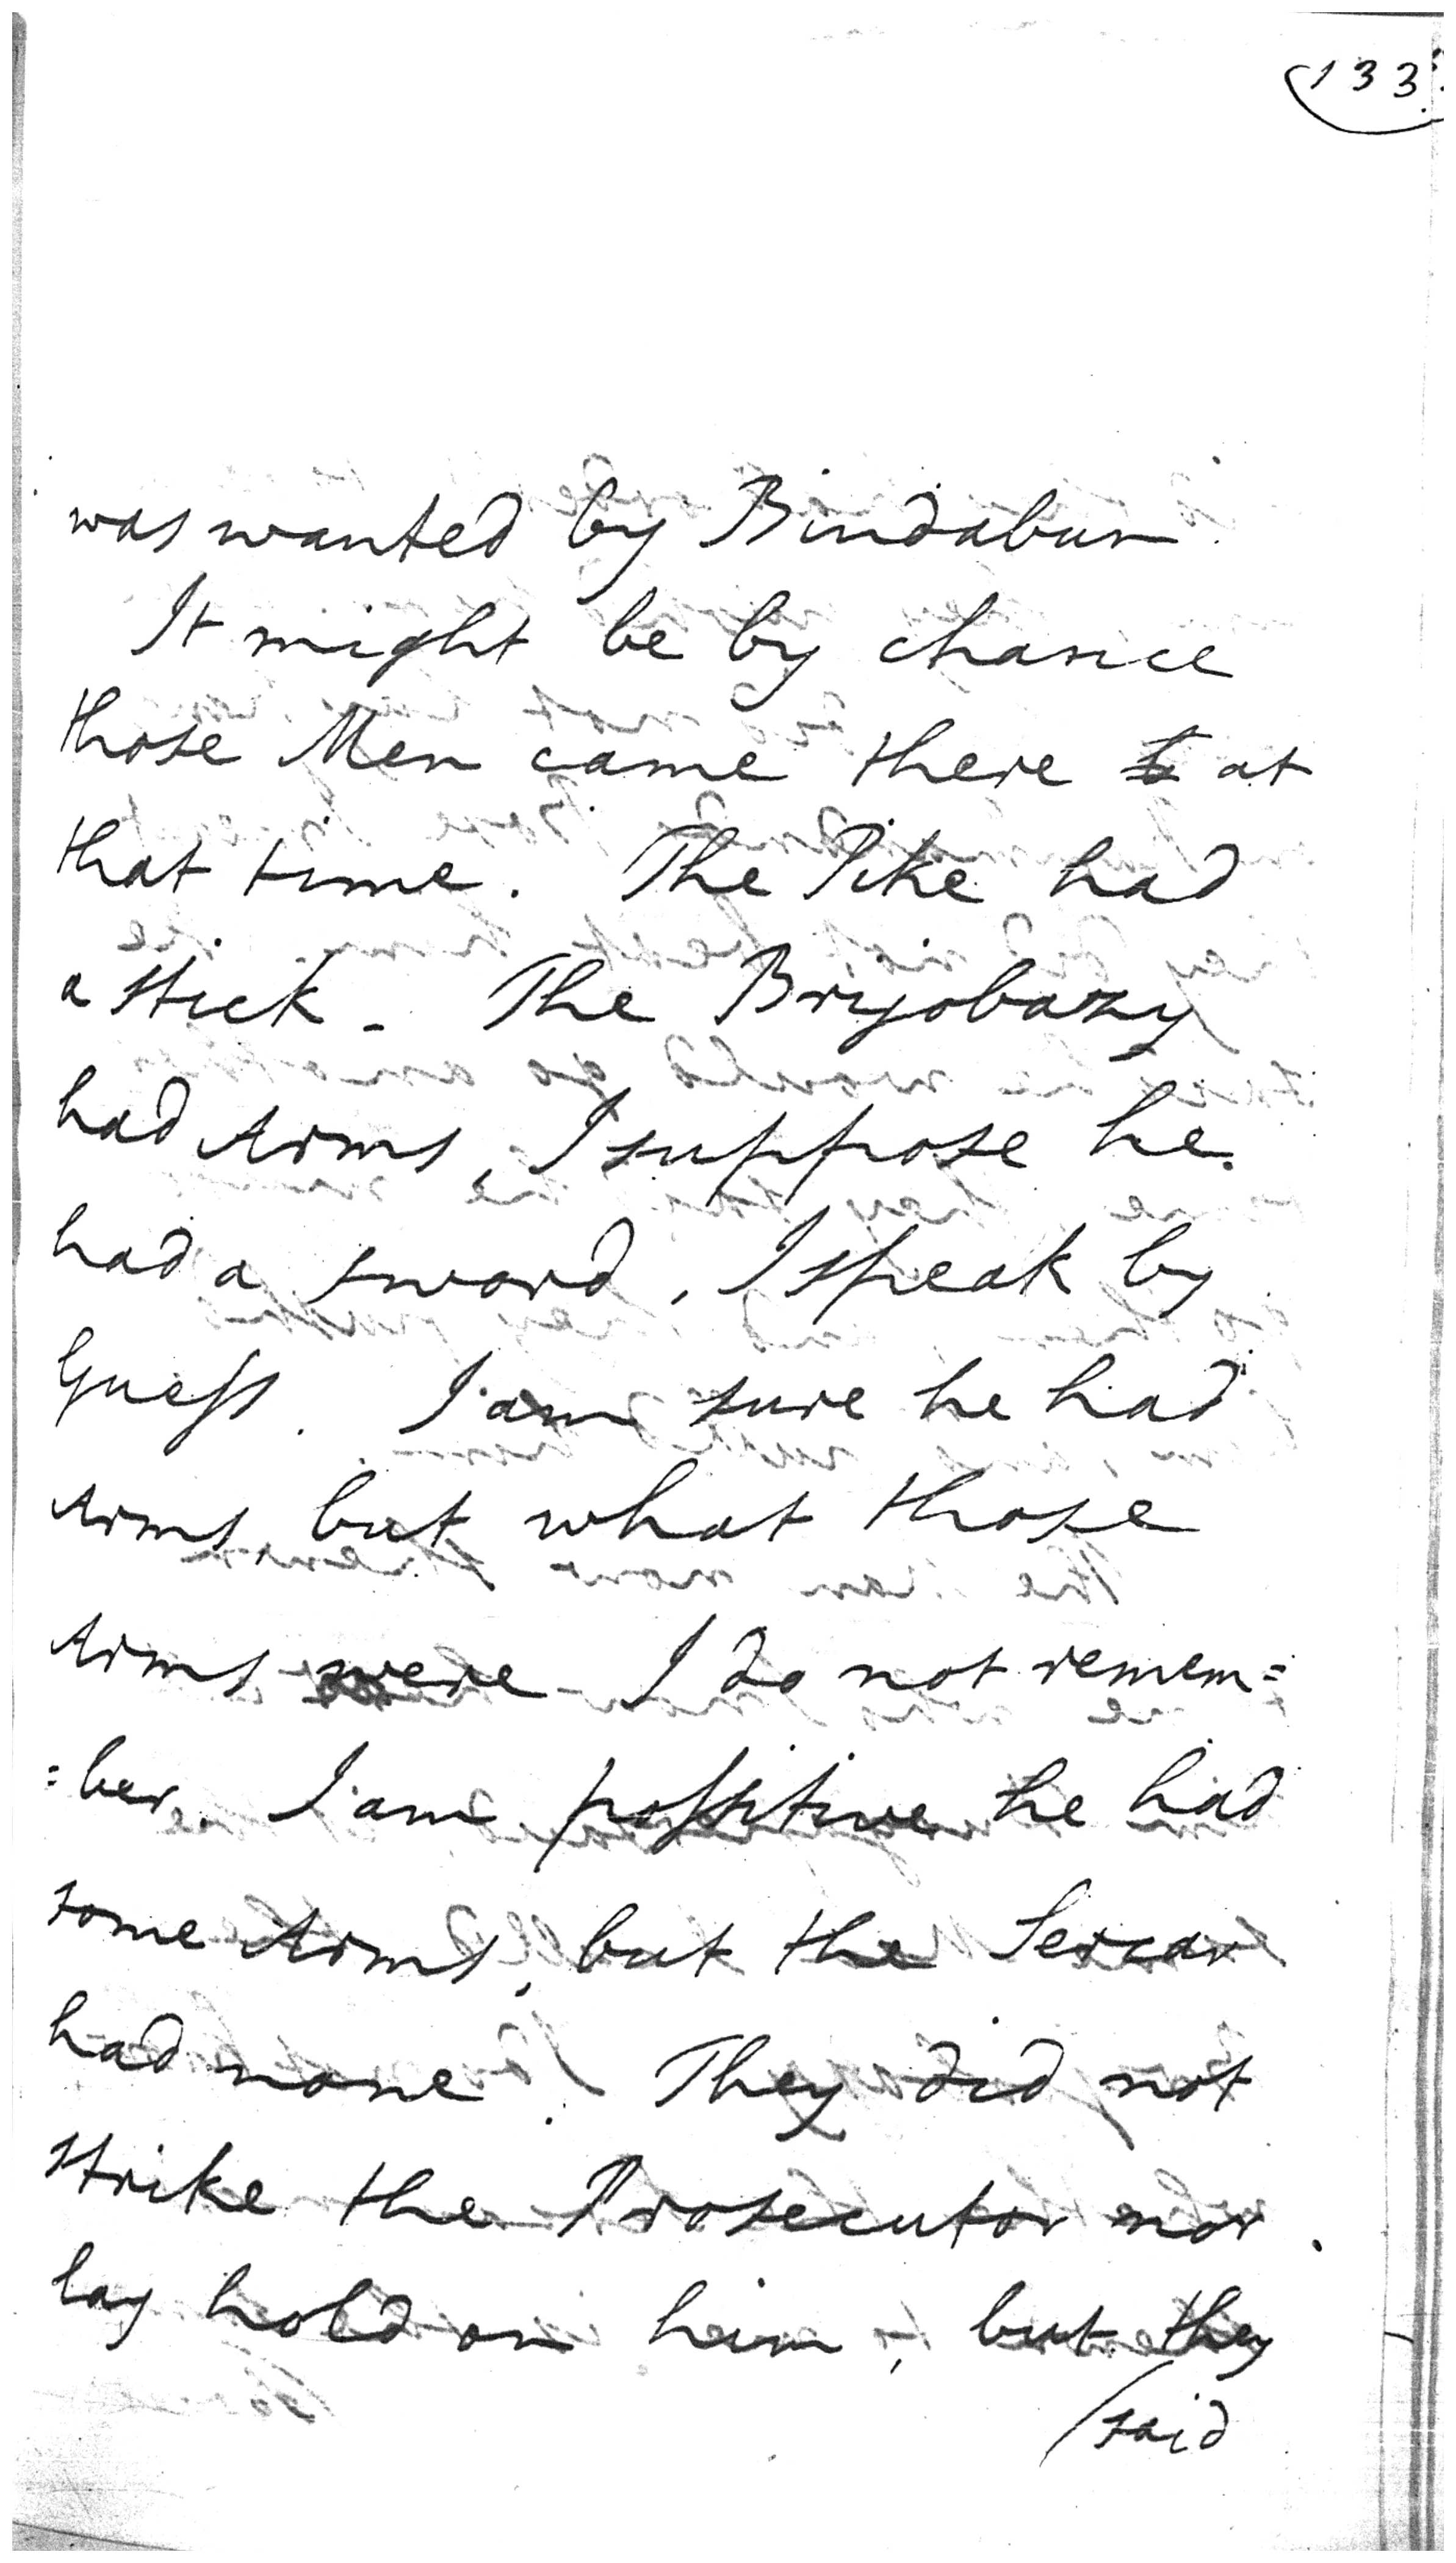 133
was wanted by Bindabun
It might be by chance
those Men came there to at
that time. The Pike had
a stick - The Brijobazy
had Arms, I suppose he
had a sword, I speak by
Guess. I am sure he had
Arms, but what those
Arms were I do not remem=
=ber. I am possitive he had
some Arms, but the Sercar
had none. They did not
strike the Prosecutor nor
lay hold on him, but they
/said